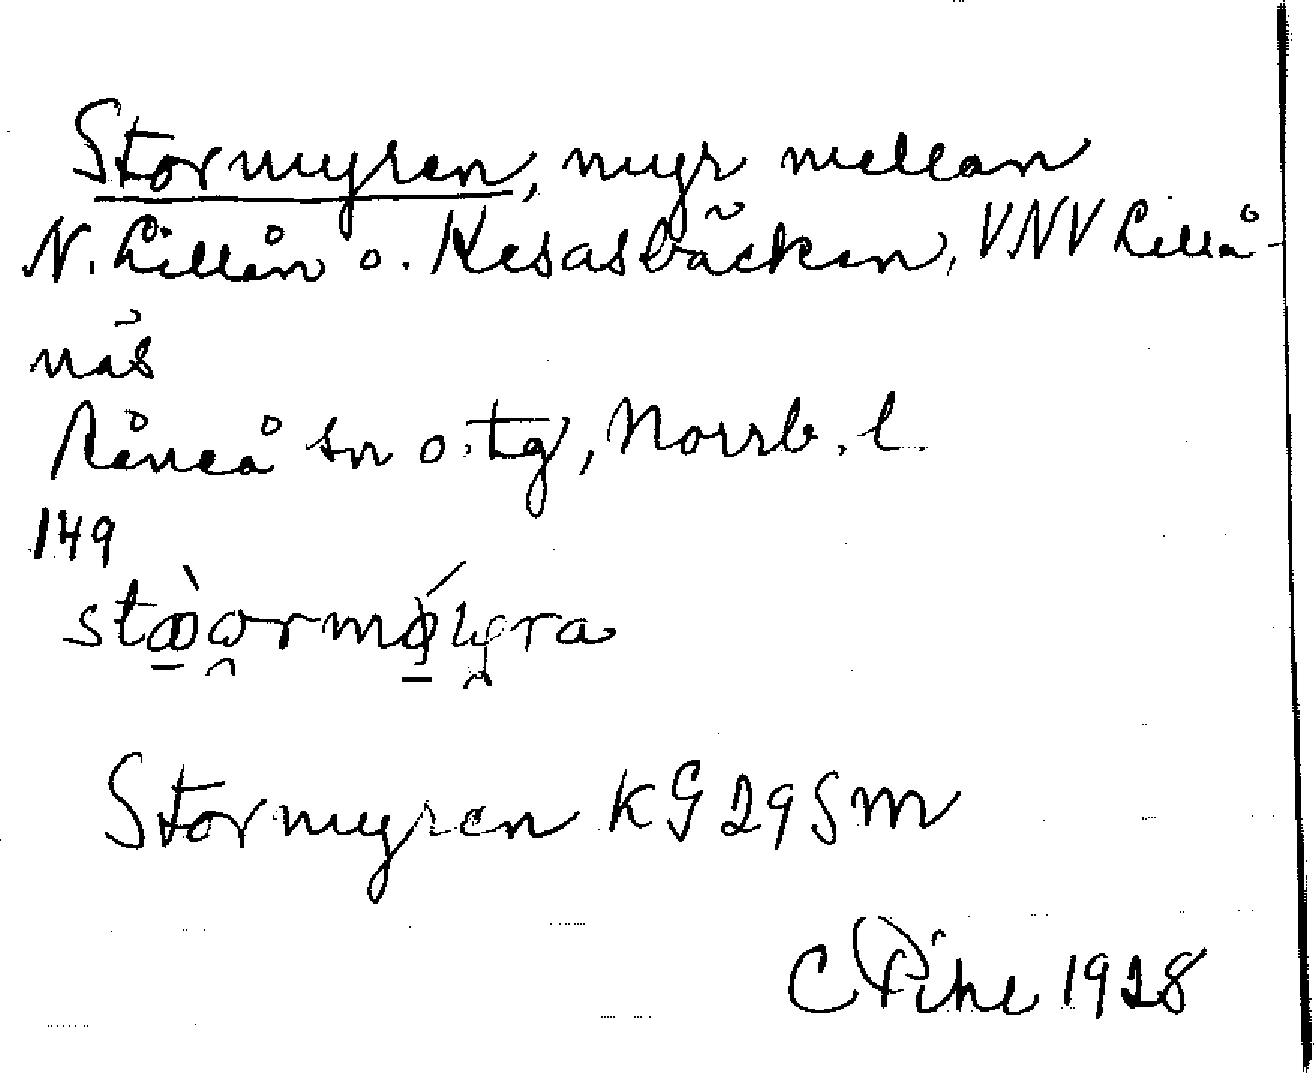 Stormyren, myr mellan
N. Lillån o. Kesasbäcken, VNV Lillå-
näs
Råneå sn o. tg, Norrb. l.
149
Stormyren KG 29 SM
C Pihl 1928